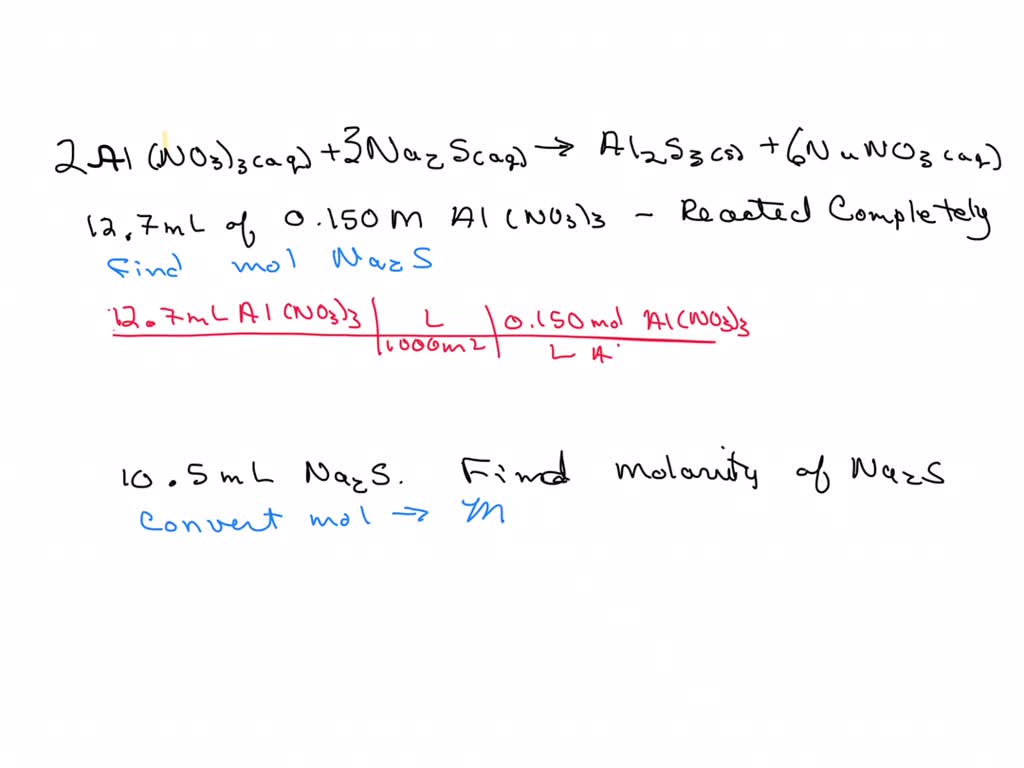 2 Al (NO3)3 (aq) + 3 Na2 S (aq) → Al2S3 (s) + 6 NaNO3 (aq)
12.7 mL of 0.150 M Al (NO3)3 - Reacted Completely
Find mol Na2S
12.7 mL Al (NO3)3 | L | 0.150 mol Al(NO3)3
1000mL | L A
10.5 mL Na2S. Find molarity of Na2S
Convert mol → M